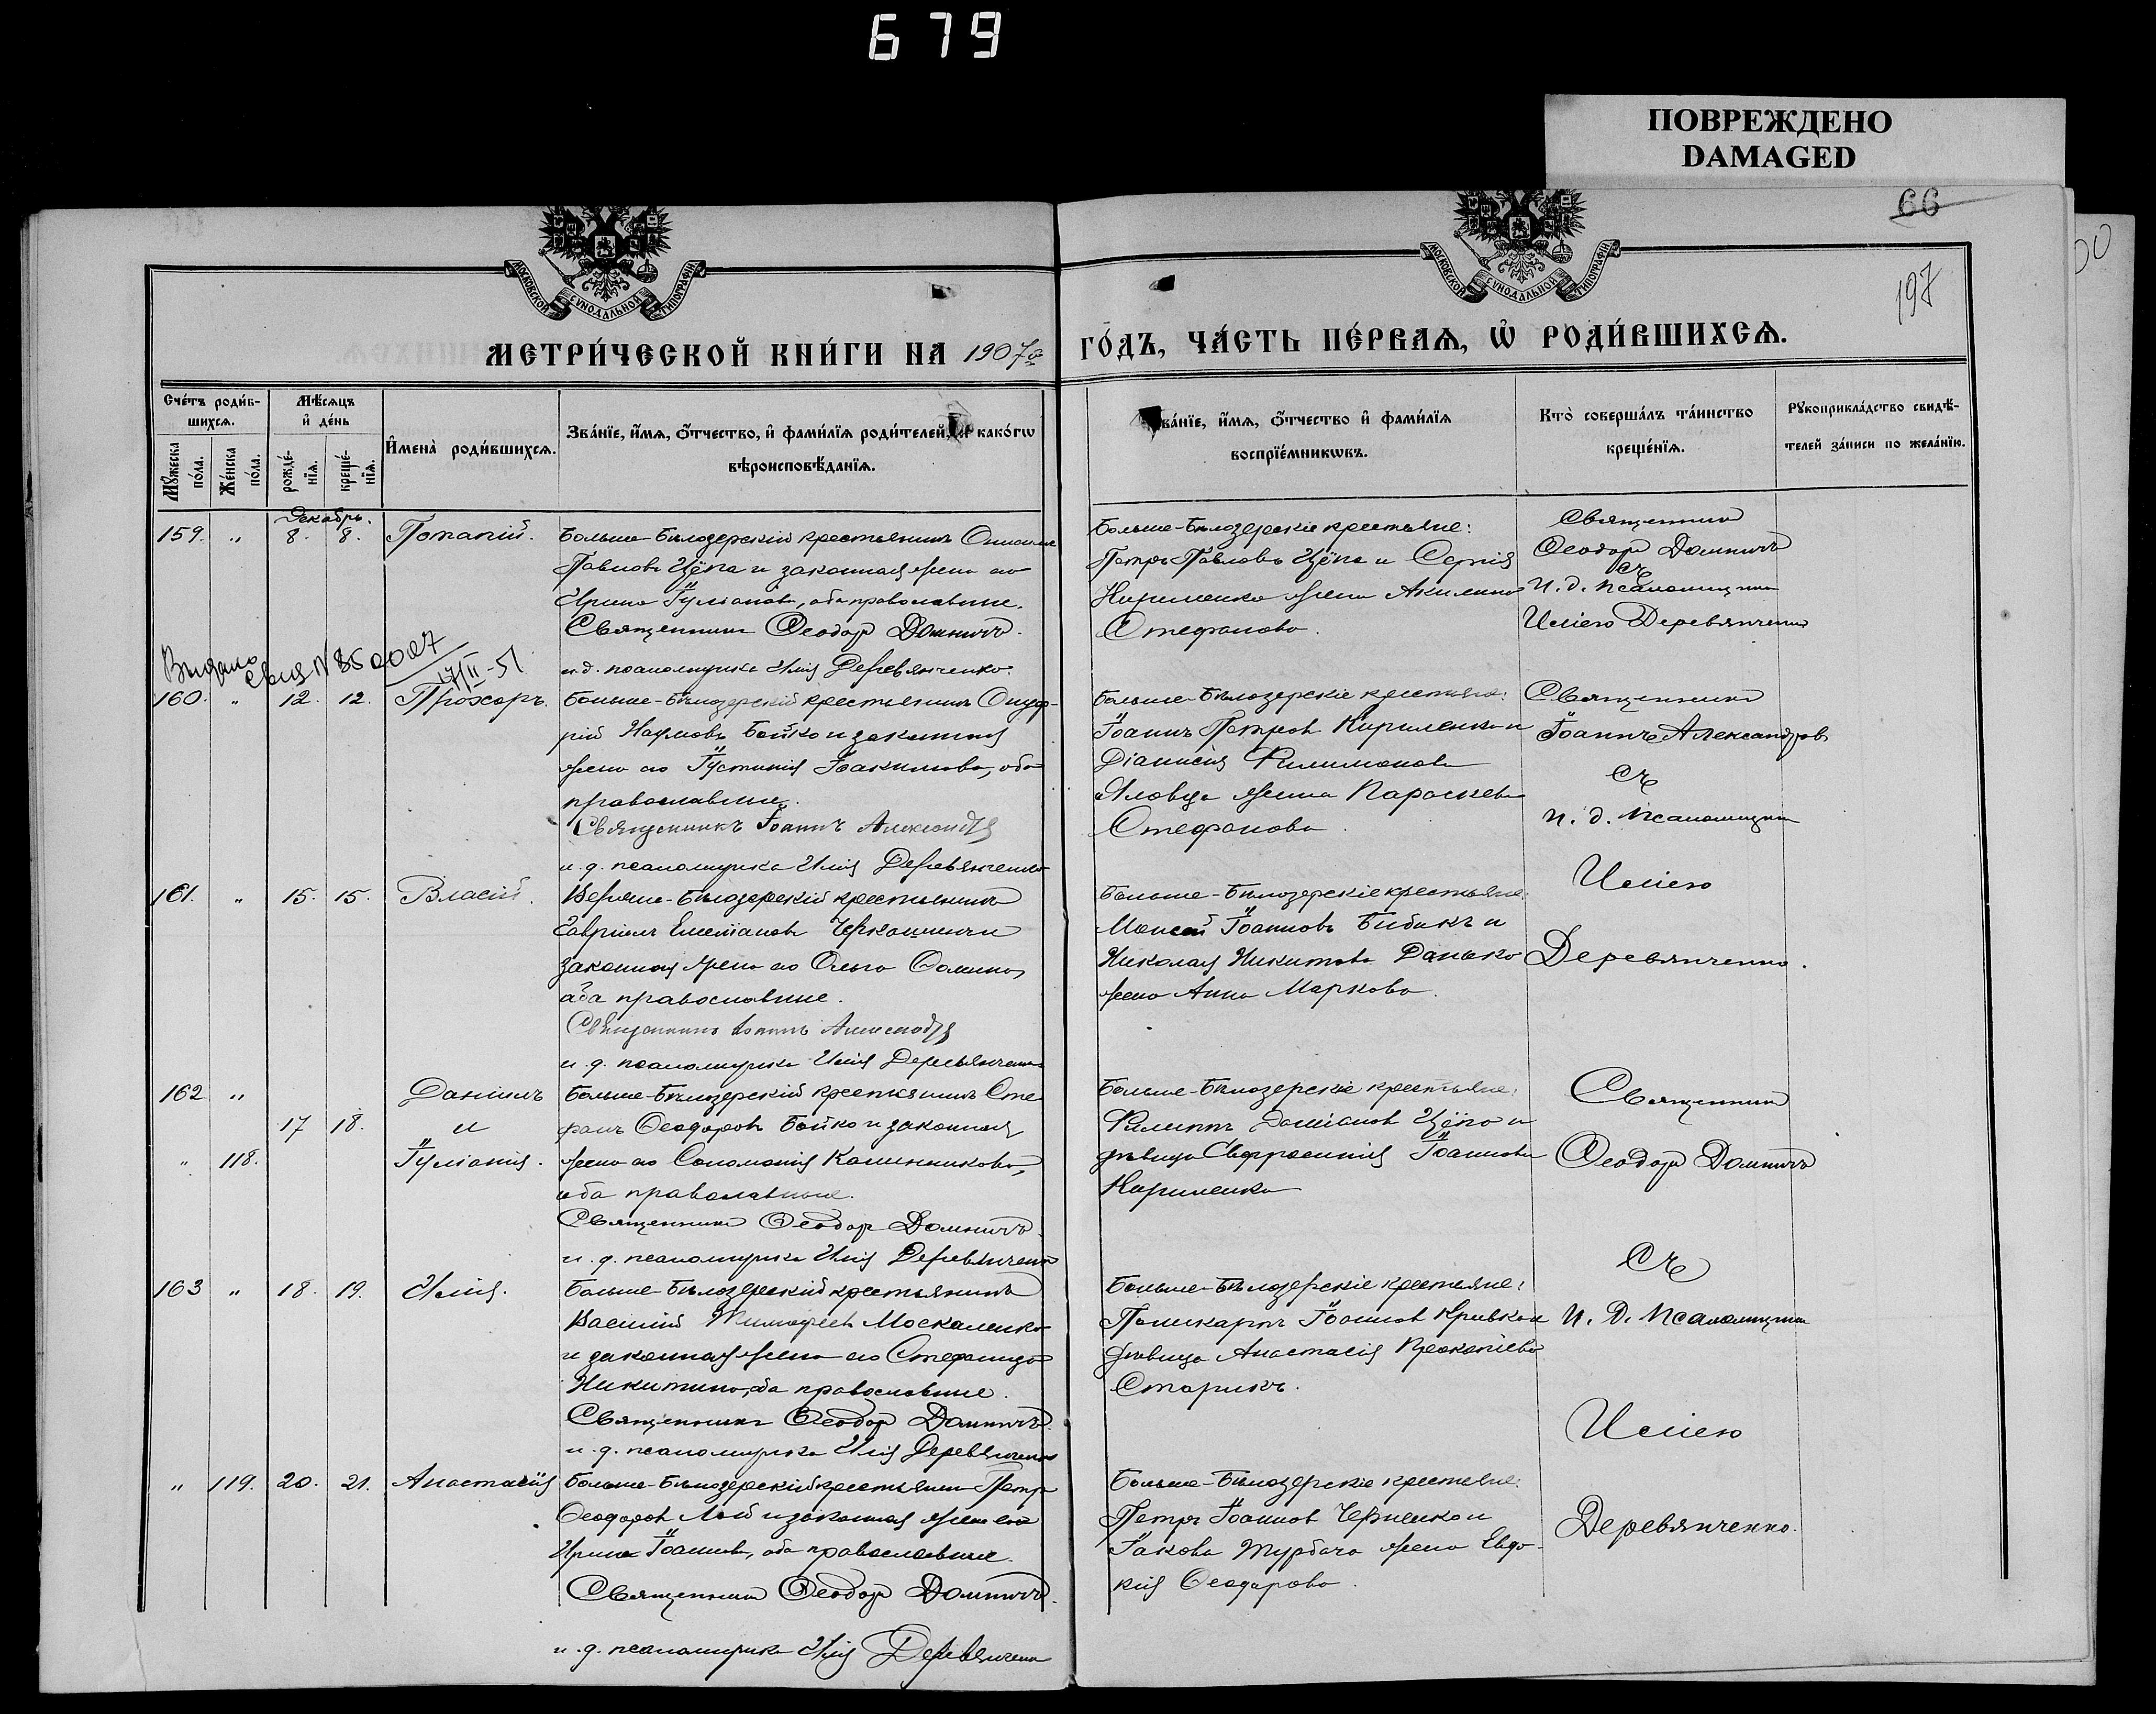 679
ПОВРЕЖДЕНО
DAMAGED
66
197
МОСКОВСКОЙ СѴНОДАЛЬНОЙ ТИПОГРАФІИ
МОСКОВСКОЙ СѴНОДАЛЬНОЙ ТИПОГРАФІИ
МЕТРИ́ЧЕСКОЙ КНИ́ГИ НА 1907 го́дъ, ЧА́СТЬ ПЕ́РВАѦ, Ѡ҆ РОДИ́ВШИХСѦ.
Сче́тъ роди́в-
шихсѧ.
Мѣ́сѧцъ
и҆ де́нь
Мꙋ́жеска
по́ла.
Же́нска
по́ла.
рожде́-
нїѧ.
креще́-
нїѧ.
И҆мена̀ роди́вшихсѧ.
Зва́нїе, и҆́мѧ, ѻ҆́тчество, и҆ фами́лїѧ роди́телей, и҆ како́гѡ
вѣроисповѣ́данїѧ.
ва́нїе, и҆́мѧ, ѻ҆́тчество и҆ фами́лїѧ
воспрїе́мникѡвъ.
Кто̀ соверша́лъ та́инство
креще́нїѧ.
Рꙋкоприкла́дство свидѣ́-
телей за́писи по жела́нїю.
Декабрь.
159. " 8. 8. Потапій.
Больше-Бѣлозерскій крестьянинъ
Павловъ Цёпа и законная жена его
Ирина Іуліанова, оба православные.
Священникъ Ѳеодоръ Домничъ.
и.д. псаломщика Илія Деревянченко.
Больше-Бѣлозерскіе крестьяне:
Петръ Павловъ Цёпа и Сергія
Кириленко жена Акилина
Стефанова.
Священникъ
Ѳеодоръ Домничъ
съ
и. д. псаломщика
Иліею Деревянченко
Выдано свид № 850007
17/II-51
160. " 12. 12. Прохоръ.
Больше-Бѣлозерскій крестьянинъ Онуф-
рій Наумовъ Бойко и законная
жена его Іустинія Іоакимова, оба
православные.
Священникъ Іоаннъ Александровъ
и. д. псаломщика Илія Деревянченко
Больше-Бѣлозерскіе крестьяне:
Іоаннъ Петровъ Кириленко и
Діанисія Филимонова
Яловца жена Параскева
Стефанова.
Священникъ
Іоаннъ Александровъ
съ
и. д. псаломщика
Иліею
Деревянченко.
161. " 15. 15. Власій.
Верхне-Бѣлозерскій крестьянинъ
Гавріилъ Емеліановъ Черкашинъ и
законная жена его Ольга Ѳомина,
оба православные.
Священникъ Іоаннъ Александровъ
и. д. псаломщика Илія Деревянченко
Больше-Бѣлозерскіе крестьяне:
Моисей Іоанновъ Бибикъ и
Николая Никитова Данько
жена Анна Маркова.
162 " Даніилъ
17 18. и
" 118. Іуліанія.
Больше-Бѣлозерскій крестьянинъ Сте
фанъ Ѳеодоровъ Бойко и законная
жена его Соломонія Калинникова,
оба православные.
Священникъ Ѳеодоръ Домничъ.
и. д. псаломщика Илія Деревянченко
Больше-Бѣлозерскіе крестьяне:
Филиппъ Даміановъ Цёпа и
дѣвица Евфросинія Іоаннова
Кириленко
Священникъ
Ѳеодоръ Домничъ
съ
И. д. псаломщика
Иліею
Деревянченко.
163 " 18. 19. Илія.
Больше-Бѣлозерскій крестьянинъ
Василій Тимоѳеевъ Москаленко
и законная жена его Стефанида
Никитина, оба православные.
Священникъ Ѳеодоръ Домничъ.
и. д. псаломщика Илія Деревянченко
Больше-Бѣлозерскіе крестьяне:
Поликарпъ Іоанновъ Кривко и
дѣвица Анастасія Прокопіева
Старикъ.
" 119. 20. 21. Анастасія
Больше-Бѣлозерскій крестьянинъ Петръ
Ѳеодоровъ Лой и законная жена его
Ирина Іоаннова, оба православные.
Священникъ Ѳеодоръ Домничъ.
и. д. псаломщика Илія Деревянченко
Больше-Бѣлозерскіе крестьяне:
Петръ Іоанновъ Черненко и
Іакова Турбача жена Евдо-
кія Ѳеодорова.